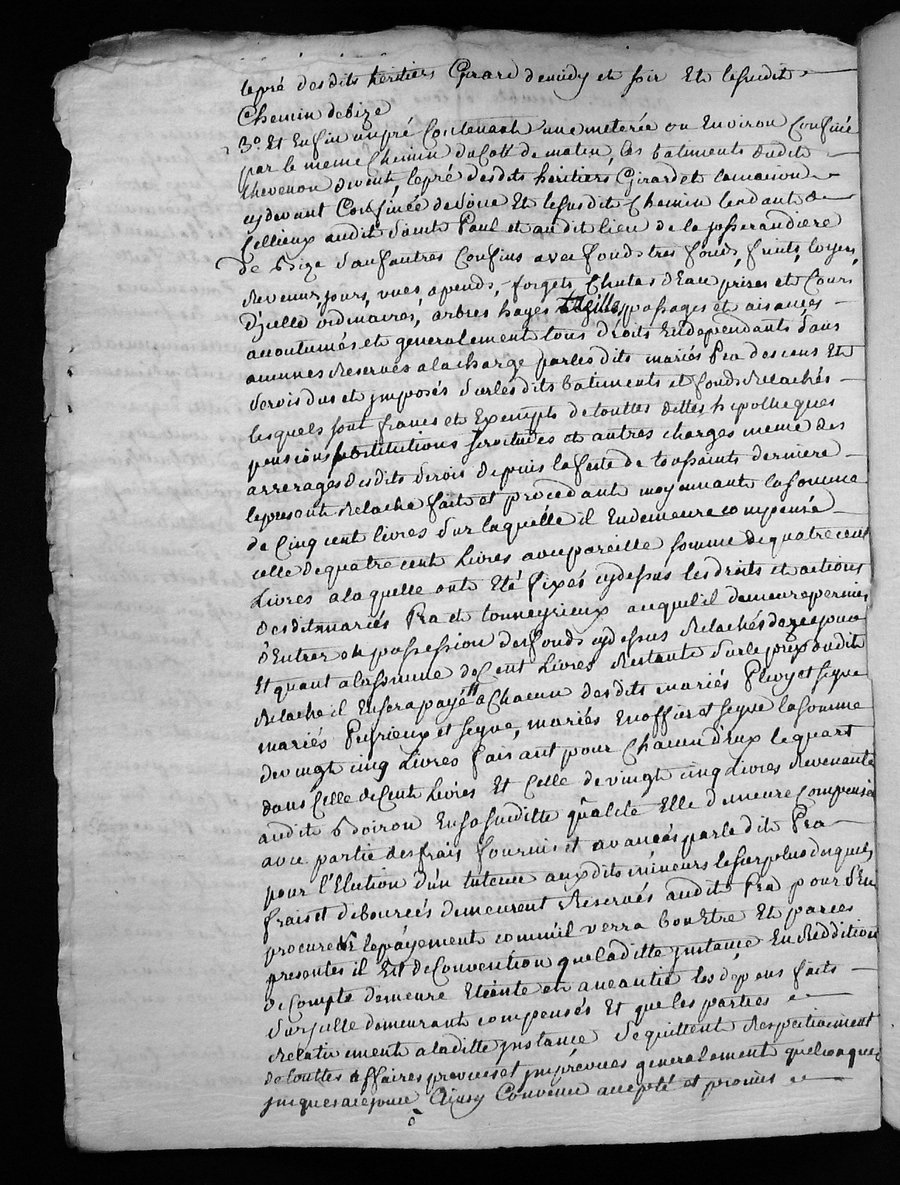 le pré desdits héritiers Girard de midy et soir Et le susdit
Chemin de bize
3.º Et Enfin un pré Contenant une meterée ou Environ Confiné
par le même Chemin du Cotté de matin, les batiments dudit
thevenon de vent, le pré desdits héritiers Girard et la maison
cydevant Confinée de Soir Et le susdit Chemin tendant de
Cellieux audit Saint Paul et audit lieu de la josserandiere
de Bize Sauf autres Confins avec fonds tres fonds, fruits, loyers,
Revenus, jours, vues, apends, forgets, Chutes d'Eau prises et Cours
d'jcelle ordinaires, arbres hayes passages et aisances
accoutumés et generalement tous droits En dependants Sans
aucunes Reserves a la charge par lesdits mariés Pra des cens Et
Servis dus et jmposés Sur lesdits batiments et fonds Relachés
lesquels sont francs et Exempts de touttes dettes hipotheques
pensions substitutions servitudes et autres charges meme des
arrerages desdits Servis depuis la feste de toussaints derniere
le present Relache fait et procedant moyennant la somme
de Cinq cent livres Sur laquelle il En demeure compensé
celle de quatre cent Livres avec pareille somme de quatre cent
Livres a laquelle ont Eté fixés cy dessus les droits et actions
desdits mariés Pra et tonneyrieux auquel il demeure permis
d'Entrer En possession des fonds cy dessus Relachés
Et quant a la somme de Cent Livres Restante Sur le prix dudit
Relache il En sera payé a Chacun desdits mariés Pleny et Seyve
mariés Peyrieux et Seyve, mariés et Seyve la somme
de vingt cinq Livres faisant pour Chacun d'Eux le quart
dans Celle de Cent Livres Et Celle de vingt cinq Livres Revenante
audit Bdoiron En sa susditte qualité Elle demeure Compensée
avec partie des frais fournis et avancés par ledit Pra
pour l'Elution d'un tuteur auxdits mineurs le surplus desquels
frais et debourcés demeurent Reservés audit Pra pour S'En
procurer le payement comm'il verra bon Etre Et par ces
presentes il Est de Convention que laditte jnstance En Reddition
de Compte demeure Eteinte et aneantie les depens faits
Sur jcelle demeurant compensés Et que les parties
Relativement a laditte jnstance Se quittent Respectivement
de touttes affaires preveues et jmpréveues generalement quelconques
jusques a ce jour Ainsy Convenu accepté et promis